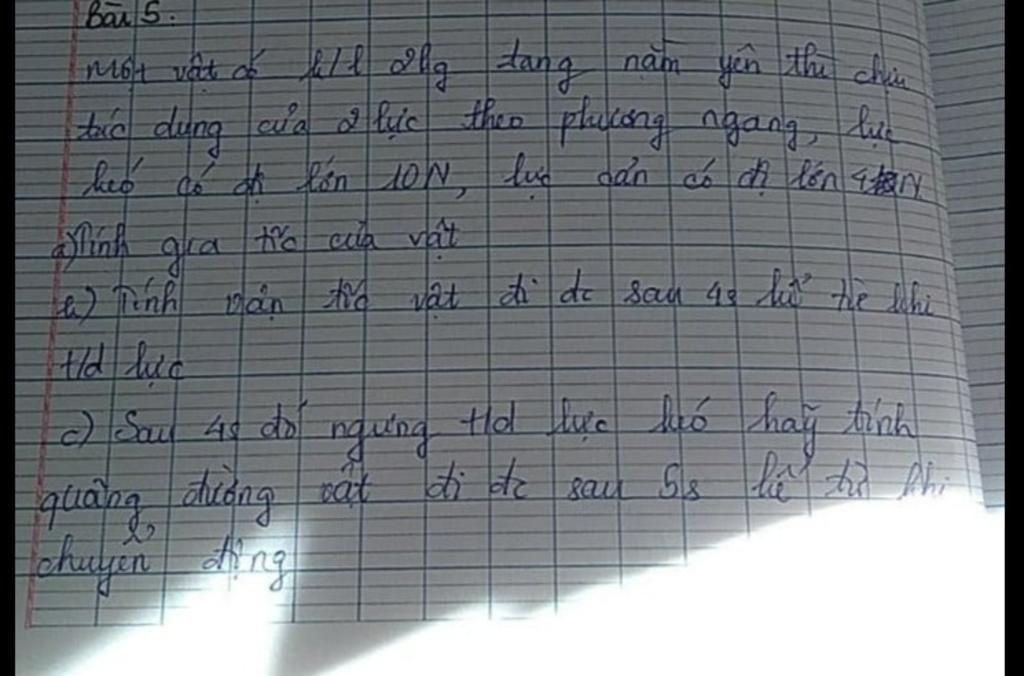 Bài 5.
Một vật có k/l 2kg đang nằm yên thì chịu
tác dụng của 2 lực theo phương ngang, lực
kéo có đị lớn 10N, lực cản có đị lớn 4N
a) Tính gia tốc của vật
b) Tính vận tốc vật đi đc sau 4s kể từ khi
t/d lực
c) Sau 4s đó ngưng t/d lực kéo hãy tính
quãng đường vật đi đc sau 5s kể từ khi
chuyển động